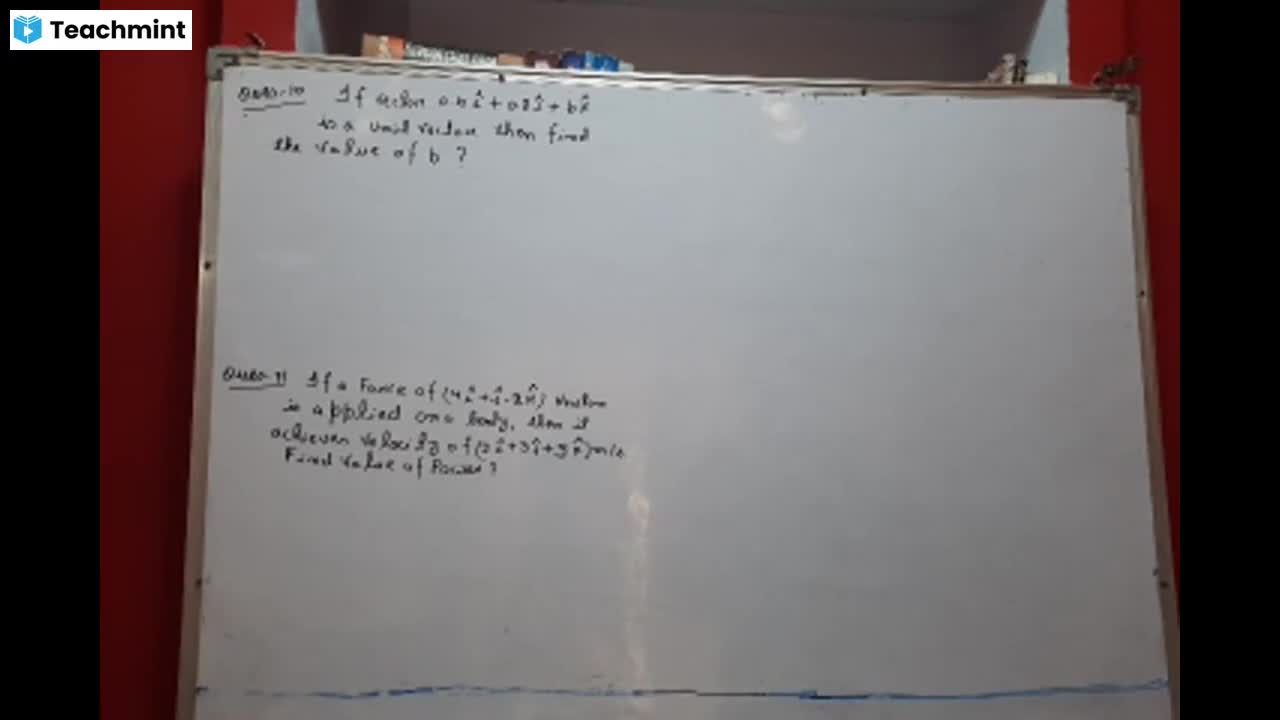 Teachmint
Ques-10 If 0.5î+0.8ĵ+bk̂
is a unit vector then find
the value of b ?
Ques-11 If a Force of (4î+ĵ-2k̂) Newton
is applied on a body, then it
achieves velocity of (2î+3ĵ+5k̂)m/s
Find value of Power?